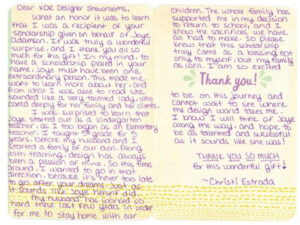 Dear KDR Designer Showrooms,
What an honor it was to learn
that I was a recipient of your
scholarship given on behalf of Joye
Adamson. It was truly a wonderful
surprise, and I thank you so so
much for this gift! In my mind, to
have a scholarship placed in your
name, Joye must have been one
extraordinary person. This made me
want to learn more about her, and
from what I was able to read she
sounded like a very talented lady who
cared deeply for her family and his clients.
I was surprised to learn that
Joye started out as a kindergarten
teacher, as I too began as an elementary
teacher. I taught 3rd grade for 5
years, before my husband and I
started a family of our own. Along
with teaching, design has always
been a passion of mine. So this time
around, I wanted to go in that
direction, because it's never too late
to go after your dreams. Just as
it sounds like Joye herself did.
My husband has worked so
hard these last few years in order
for me to stay home with our
children. The whole family has
supported me in my decision
to return to school, and I
know the sacrifices we have
all had to make. So please
know that this scholarship
truly came as a blessing not
only to myself, but my family
as well. I am so excited
Thank you!
to be on this journey and
cannot wait to see where
the design world takes me.
I know I will think of Joye
along the way, and hope to
be as talented and successful
as it sounds like she was!
THANK YOU SO MUCH
for this wonderful gift!
~Christi Estrada